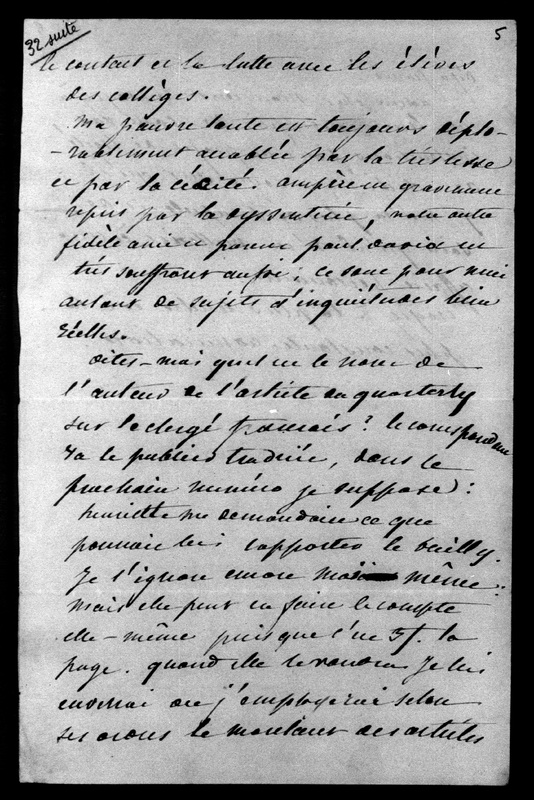 32 suite
5
le contact et la lutte avec les élèves
des collèges.
Ma pauvre tante est toujours déplo-
-rablement accablée par la tristesse
et par la cécité. ampère est gravement
repris par la dyssenterie, notre autre
fidèle ami ce pauvre paul david est
très souffrant aussi; ce sont pour moi
autant de sujets d'inquiétudes bien
réelles.
dites-moi quel est le nom de
l'auteur de l'article du quarterly
sur le clergé français? le correspondant
va le publier traduit, dans le
prochain numéro je suppose:
henriette me demandait ce que
pouvait lui rapporter le bailly.
Je l'ignore encore moi même:
mais elle peut en faire le compte
elle-même puisque c'est 5f. la
page. quand elle le voudra je lui
enverrai ou j'employerai selon
ses ordres le montant des articles